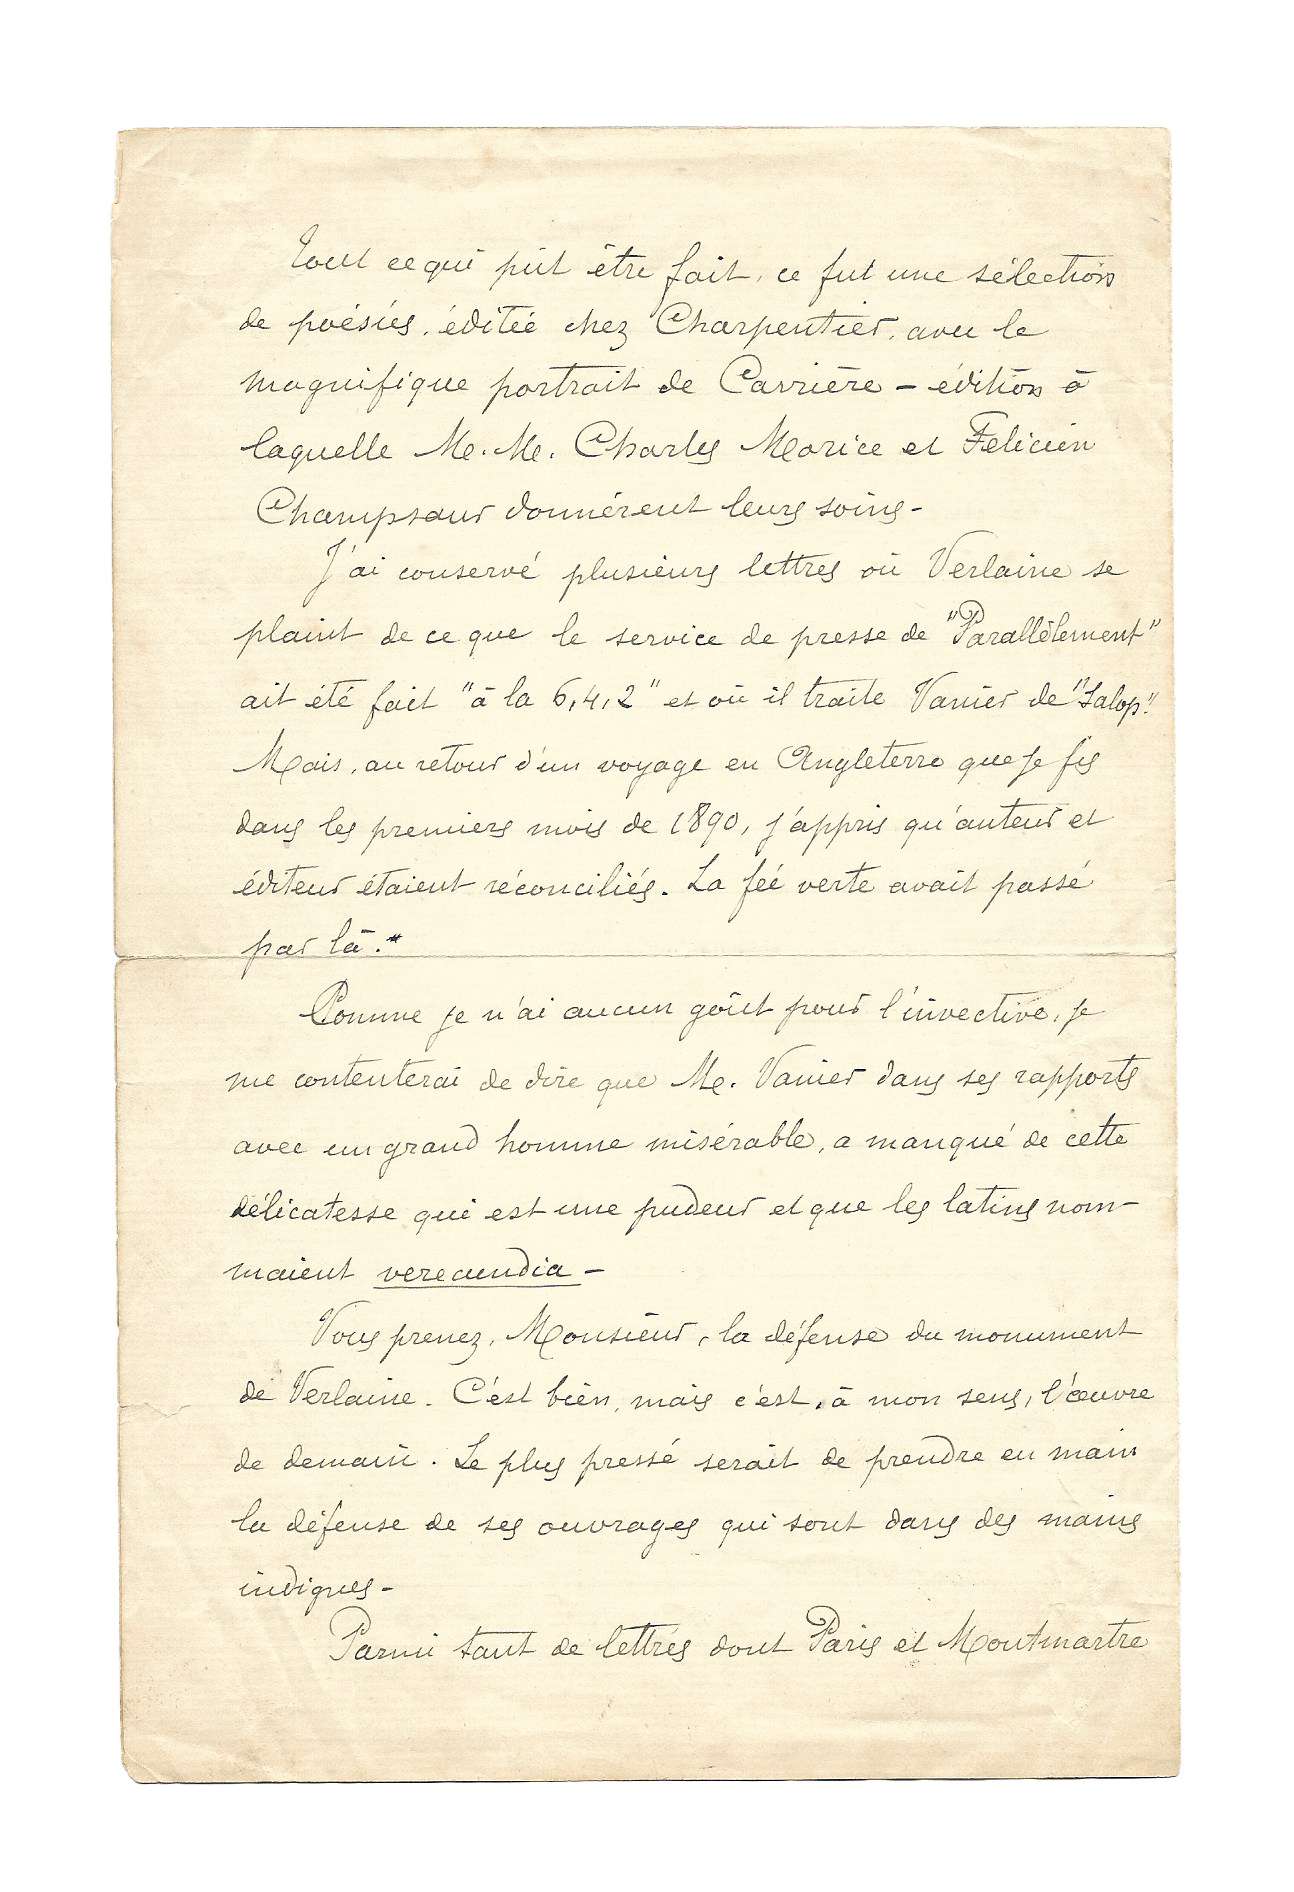 Tout ce qui pût être fait, ce fut une sélection
de poésies, éditée chez Charpentier, avec le
magnifique portrait de Carrière – édition à
laquelle M. M. Charles Morice et Félicien
Champsaur donnèrent leurs soins –
J'ai conservé plusieurs lettres où Verlaine se
plaint de ce que le service de presse de "Parallèlement"
ait été fait "à la 6, 4, 2" et où il traite Vanier de "Salop".
Mais, au retour d'un voyage en Angleterre que je fis
dans les premiers mois de 1890, j'appris qu'auteur et
éditeur étaient réconciliés. La fée verte avait passé
par là."
Comme je n'ai aucun goût pour l'invective, je
me contenterai de dire que M. Vanier dans ses rapports
avec un grand homme misérable, a manqué de cette
délicatesse qui est une pudeur et que les latins nom-
maient verecundia –
Vous prenez, Monsieur, la défense du monument
de Verlaine. C'est bien, mais c'est, à mon sens, l'œuvre
de demain. Le plus pressé serait de prendre en main
la défense de ses ouvrages qui sont dans des mains
indignes –
Parmi tant de lettrés dont Paris et Montmartre